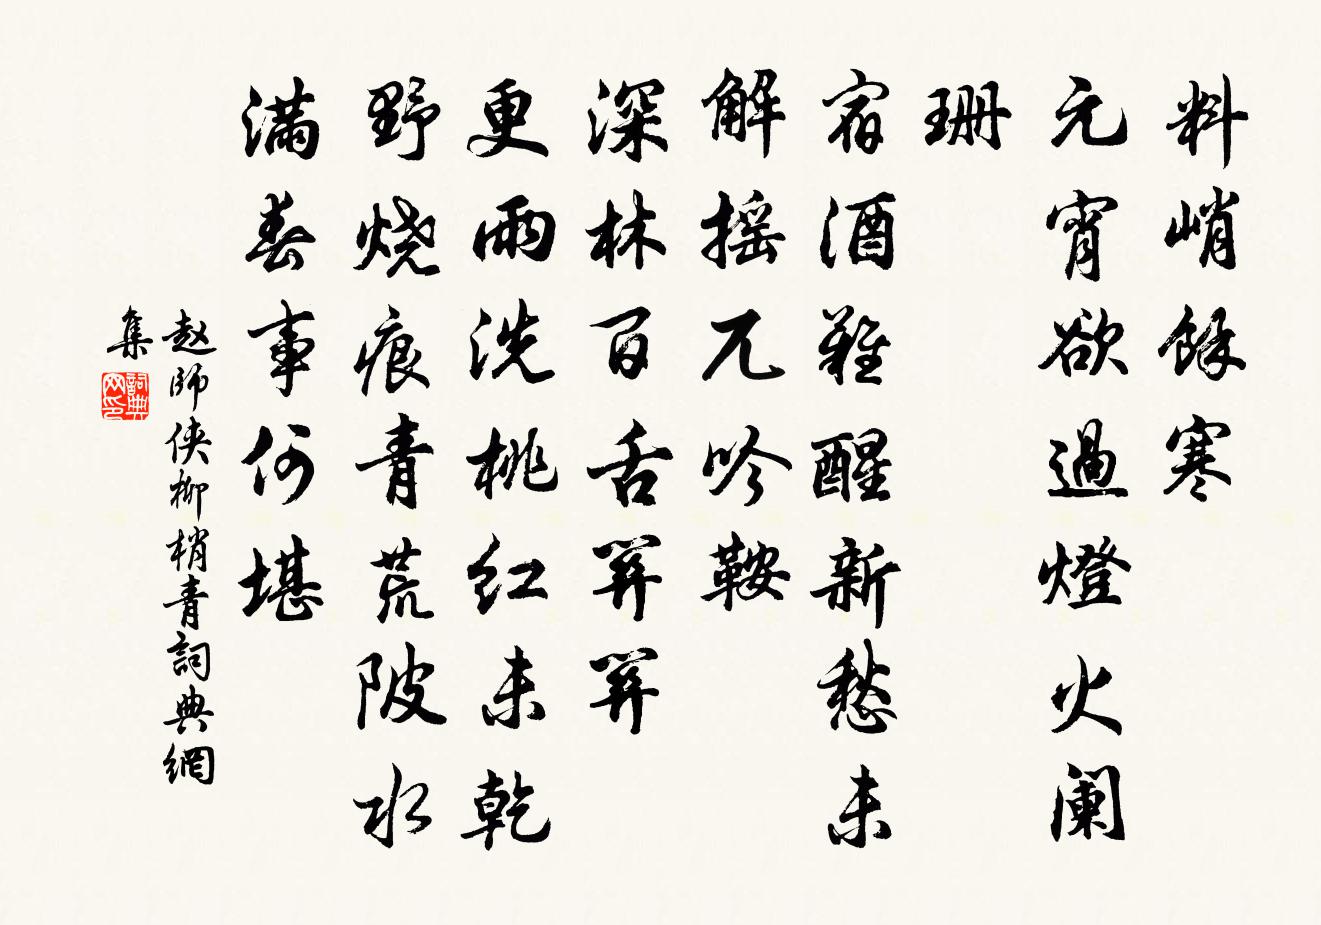 料峭餘寒
元宵欲過燈火闌
珊
宿酒難醒新愁未
解摇兀吟鞍
深林百舌關關
更雨洗桃红未乾
野烧痕青荒陂水
满春事何堪
赵師侠柳梢青詞典網
集
詞典网印